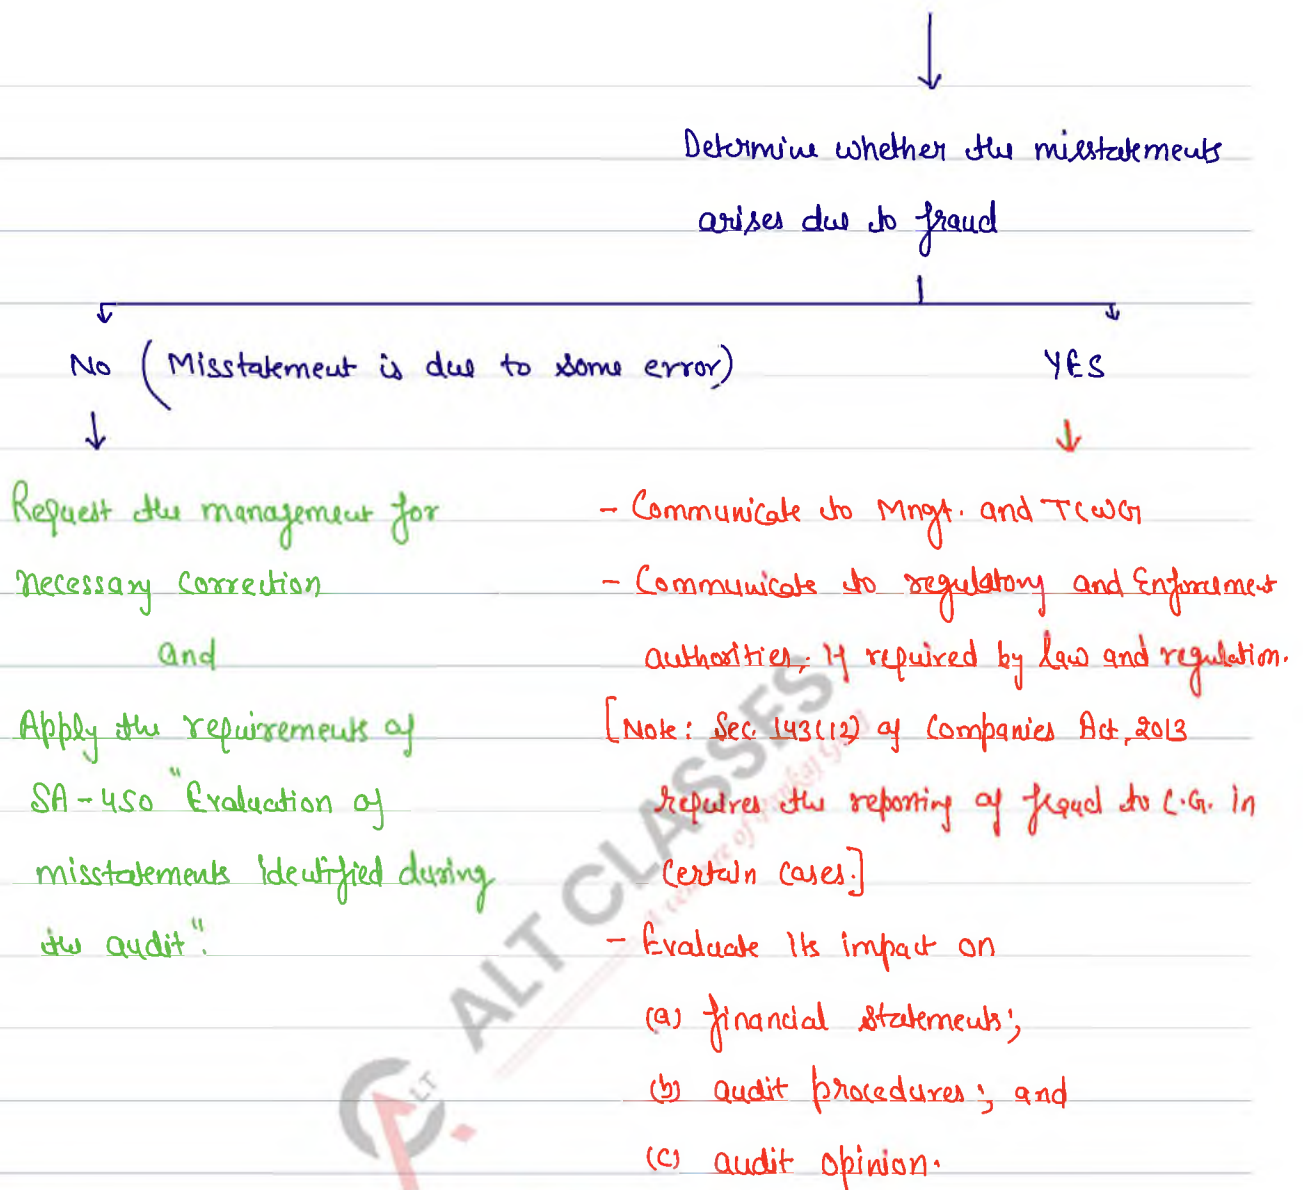 Determine whether the misstatements
arises due to fraud
No (Misstatement is due to some error)
YES
Request the management for
necessary correction
and
Apply the requirements of
SA-450 "Evaluation of
misstatements identified during
the audit".
- Communicate to Mngt. and TCWG
- Communicate to regulatory and Enforcement
authorities, If required by law and regulation.
[Note: Sec. 143(12) of Companies Act, 2013
requires the reporting of fraud to C.G. in
certain cases.]
- Evaluate its impact on
(a) financial statements;
(b) audit procedures; and
(c) audit opinion.
ALT CLASSES
A centre of Pankaj Garg
ALT